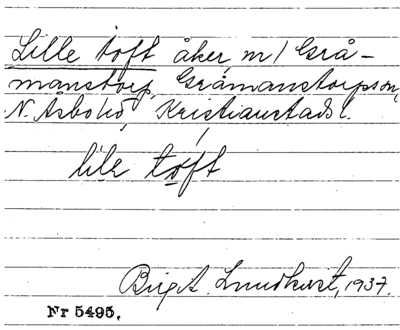 Lille toft åker m/ Grå-
månstorp, Gråmanstorpsn,
N. Åsbo hd, Kristianstads l.
lile toft
Birgit Lundkvist, 1937.
Nr 5495.